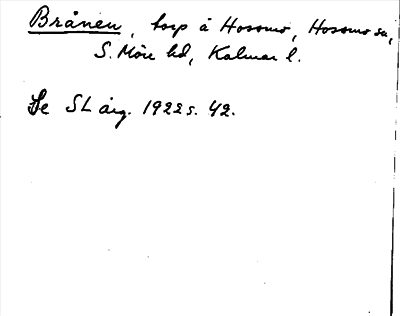 Brånen, torp å Hossmo, Hossmo sn,
S. Möre hd, Kalmar l.
Se SL årg. 1922 s. 42.